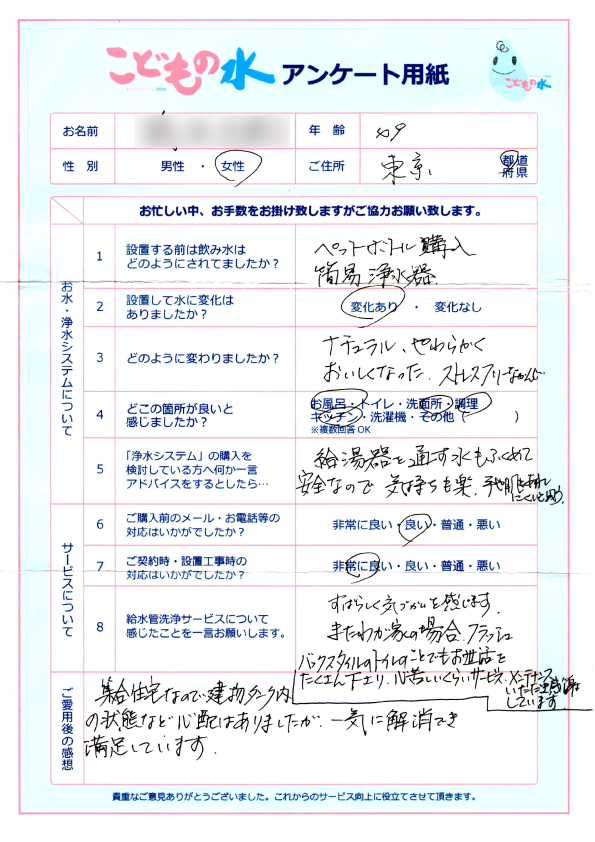 こどもの水 アンケート用紙
こどもの水
お名前 年 齢 49
性 別 男性 ・ 女性 ご住所 東京 都道府県
お忙しい中、お手数をお掛け致しますがご協力お願い致します。
お水・浄水システムについて
1 設置する前は飲み水は
どのようにされてましたか？
ペットボトル購入
簡易浄水器
2 設置して水に変化は
ありましたか？
変化あり ・ 変化なし
3 どのように変わりましたか？
ナチュラル、やわらかく
おいしくなった。ストレスフリー
4 どこの箇所が良いと
感じましたか？
お風呂・トイレ・洗面所・調理
キッチン・洗濯機・その他（ ）
※複数回答OK
5 「浄水システム」の購入を
検討している方へ何か一言
アドバイスをするとしたら…
給湯器を通す水もふくめて
安全なので 気持ちも楽。手や肌も荒れ
にくいと思う
サービスについて
6 ご購入前のメール・お電話等の
対応はいかがでしたか？
非常に良い・良い・普通・悪い
7 ご契約時・設置工事時の
対応はいかがでしたか？
非常に良い・良い・普通・悪い
8 給水管洗浄サービスについて
感じたことを一言お願いします。
すばらしく気づかいを感じます。
またわが家の場合、フラッシュ
バックスタイルのトイレのことでもお世話を
たくさん下さり、心苦しいくらいサービス、メンテナンス
いただき感謝
しています
ご愛用後の感想
集合住宅なので建物タンク内
の状態など心配はありましたが、一気に解消でき
満足しています。
貴重なご意見ありがとうございました。これからのサービス向上に役立てさせて頂きます。